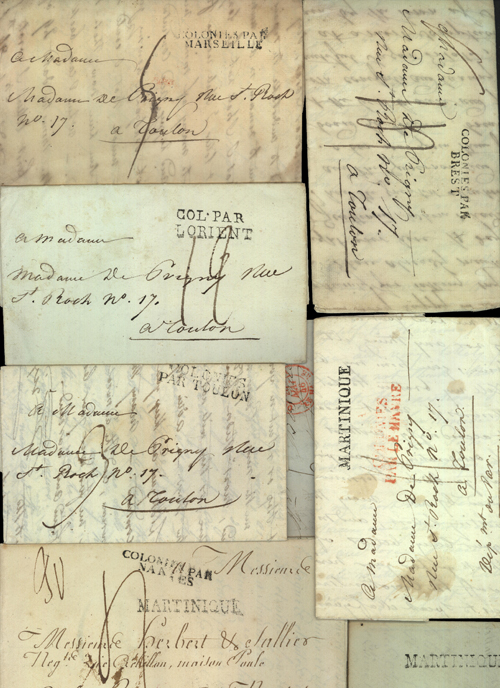 COLONIES PAR
MARSEILLE
a Madame
Madame De Prigny Rue St. Roch
No. 17.
a Toulon
COLONIES PAR
BREST
a Madame
Madame De Prigny
Rue St. Roch No. 17.
a Toulon
COL·PAR
LORIENT
a Madame
Madame De Prigny Rue
St. Roch No. 17.
a Toulon
COLONIES
PAR TOULON
a Madame
Madame De Prigny Rue
St. Roch No. 17.
a Toulon
MARTINIQUE
PAR LE HAVRE
a Madame
Madame De Prigny
Rue St. Roch No. 17.
a Toulon
COLONIES PAR
NANTES
Messieurs
MARTINIQUE
Messieurs Herbert &
maison
MARTINIQUE